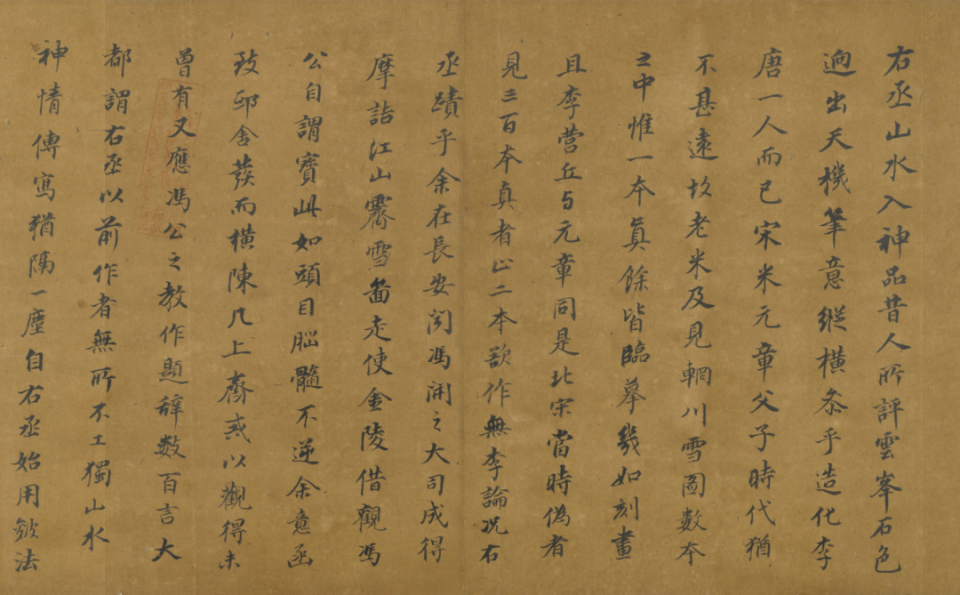 右丞山水入神品昔人所評雲峯石色
迥出天機筆意縱橫叅乎造化李
唐一人而已宋米元章父子時代猶
不甚遠故老米及見輞川雪圖數本
之中惟一本真餘皆臨摹幾如刻畫
且李營丘与元章同是北宋當時偽者
見三百本真者止二本欲作無李論況右
丞蹟乎余在長安聞馮開之大司成得
摩詰江山霽雪圖走使金陵借觀馮
公自謂寶此如頭目腦髓不逆余意函
致邸舍發而橫陳几上齋戒以觀得未
曾有又應馮公之教作題辭數百言大
都謂右丞以前作者無所不工獨山水
神情傳寫猶隔一塵自右丞始用皴法